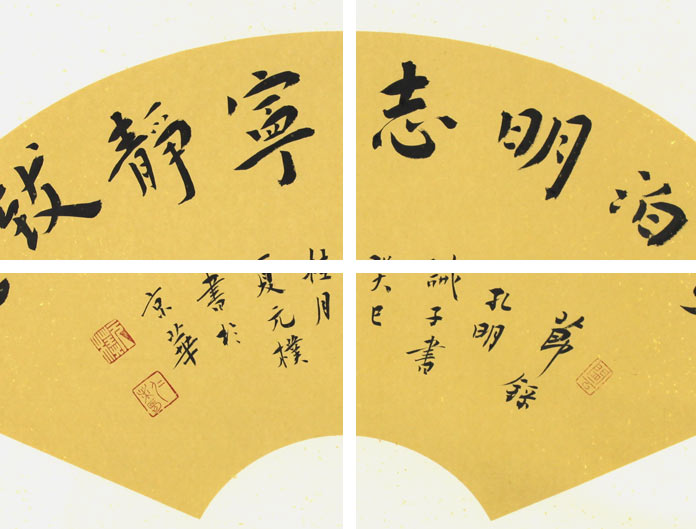 泊明志寧靜致
節錄
孔明
誡子書
癸巳
桂月
夏元樸
書於
京華